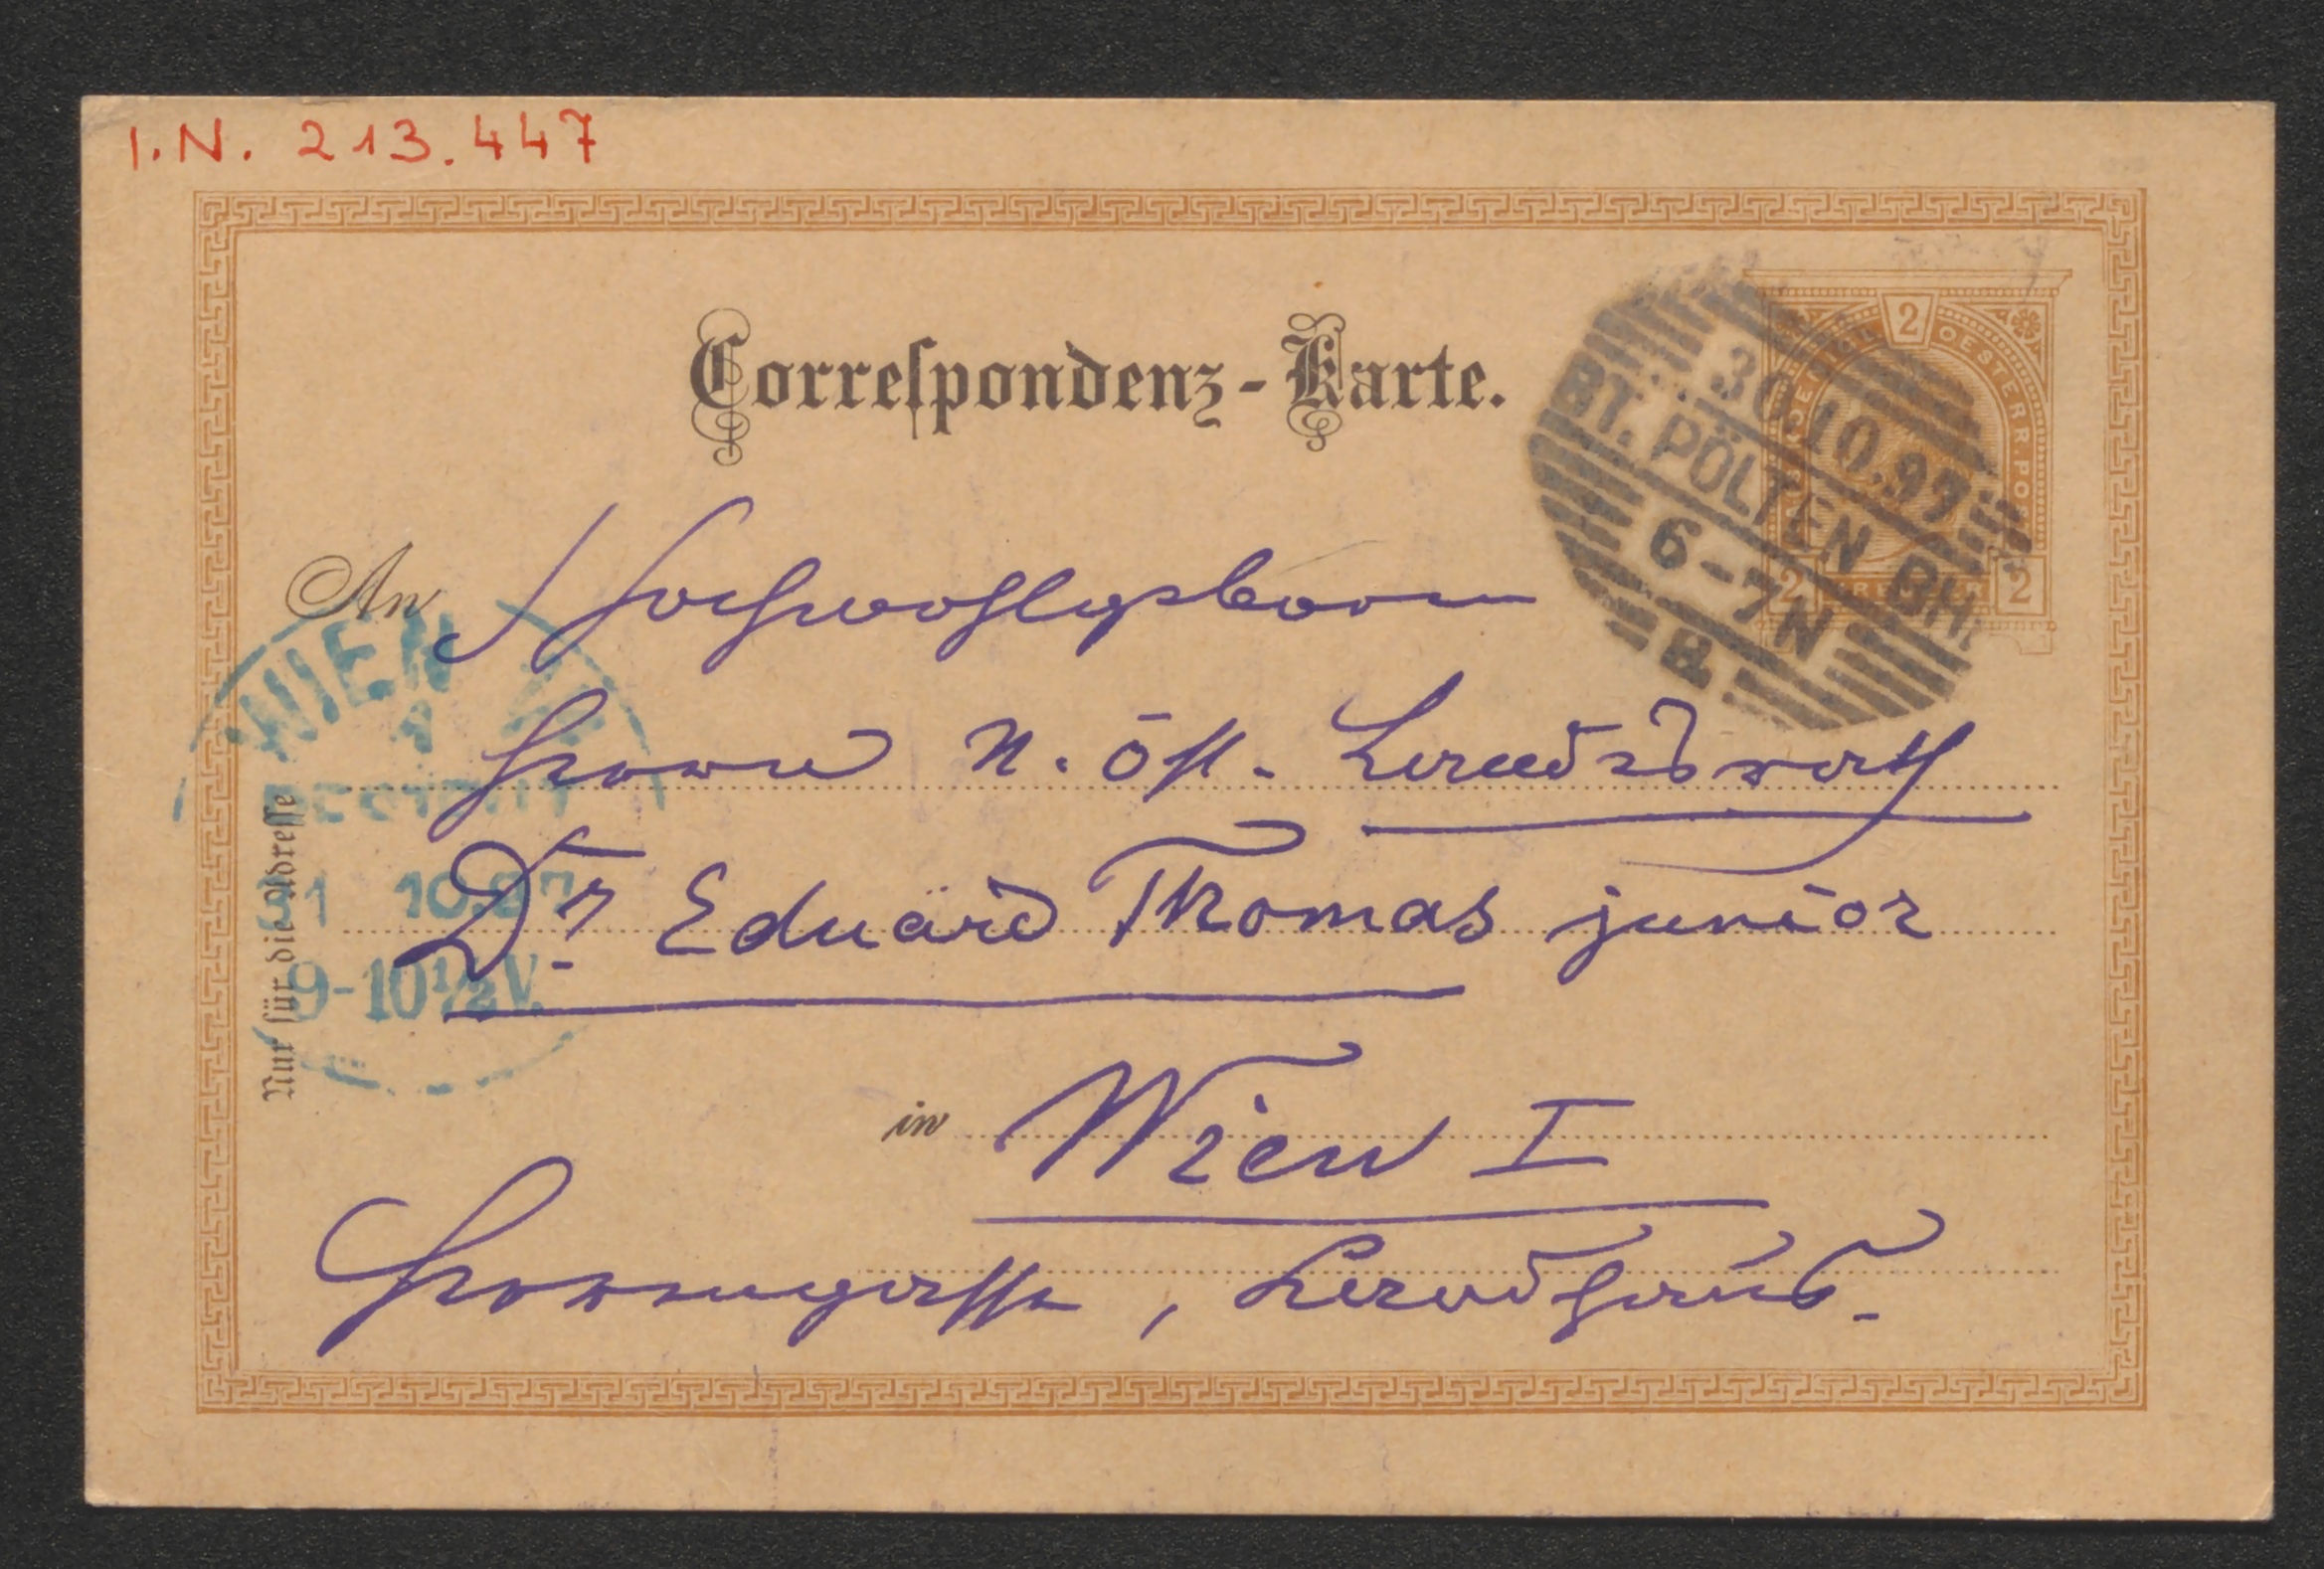 I.N. 213.447
Correſpondenz-Karte.
2
30.10.97
ST. PÖLTEN BH.
6-7N
2 2
An Hochwohlgeboren
Herrn n. öst. Landesrath
Dr. Eduard Thomas junior
in Wien I
Herrengasse, Landhaus.
Nur für die Adreſſe
WIEN
31 10.97
9-10½V.